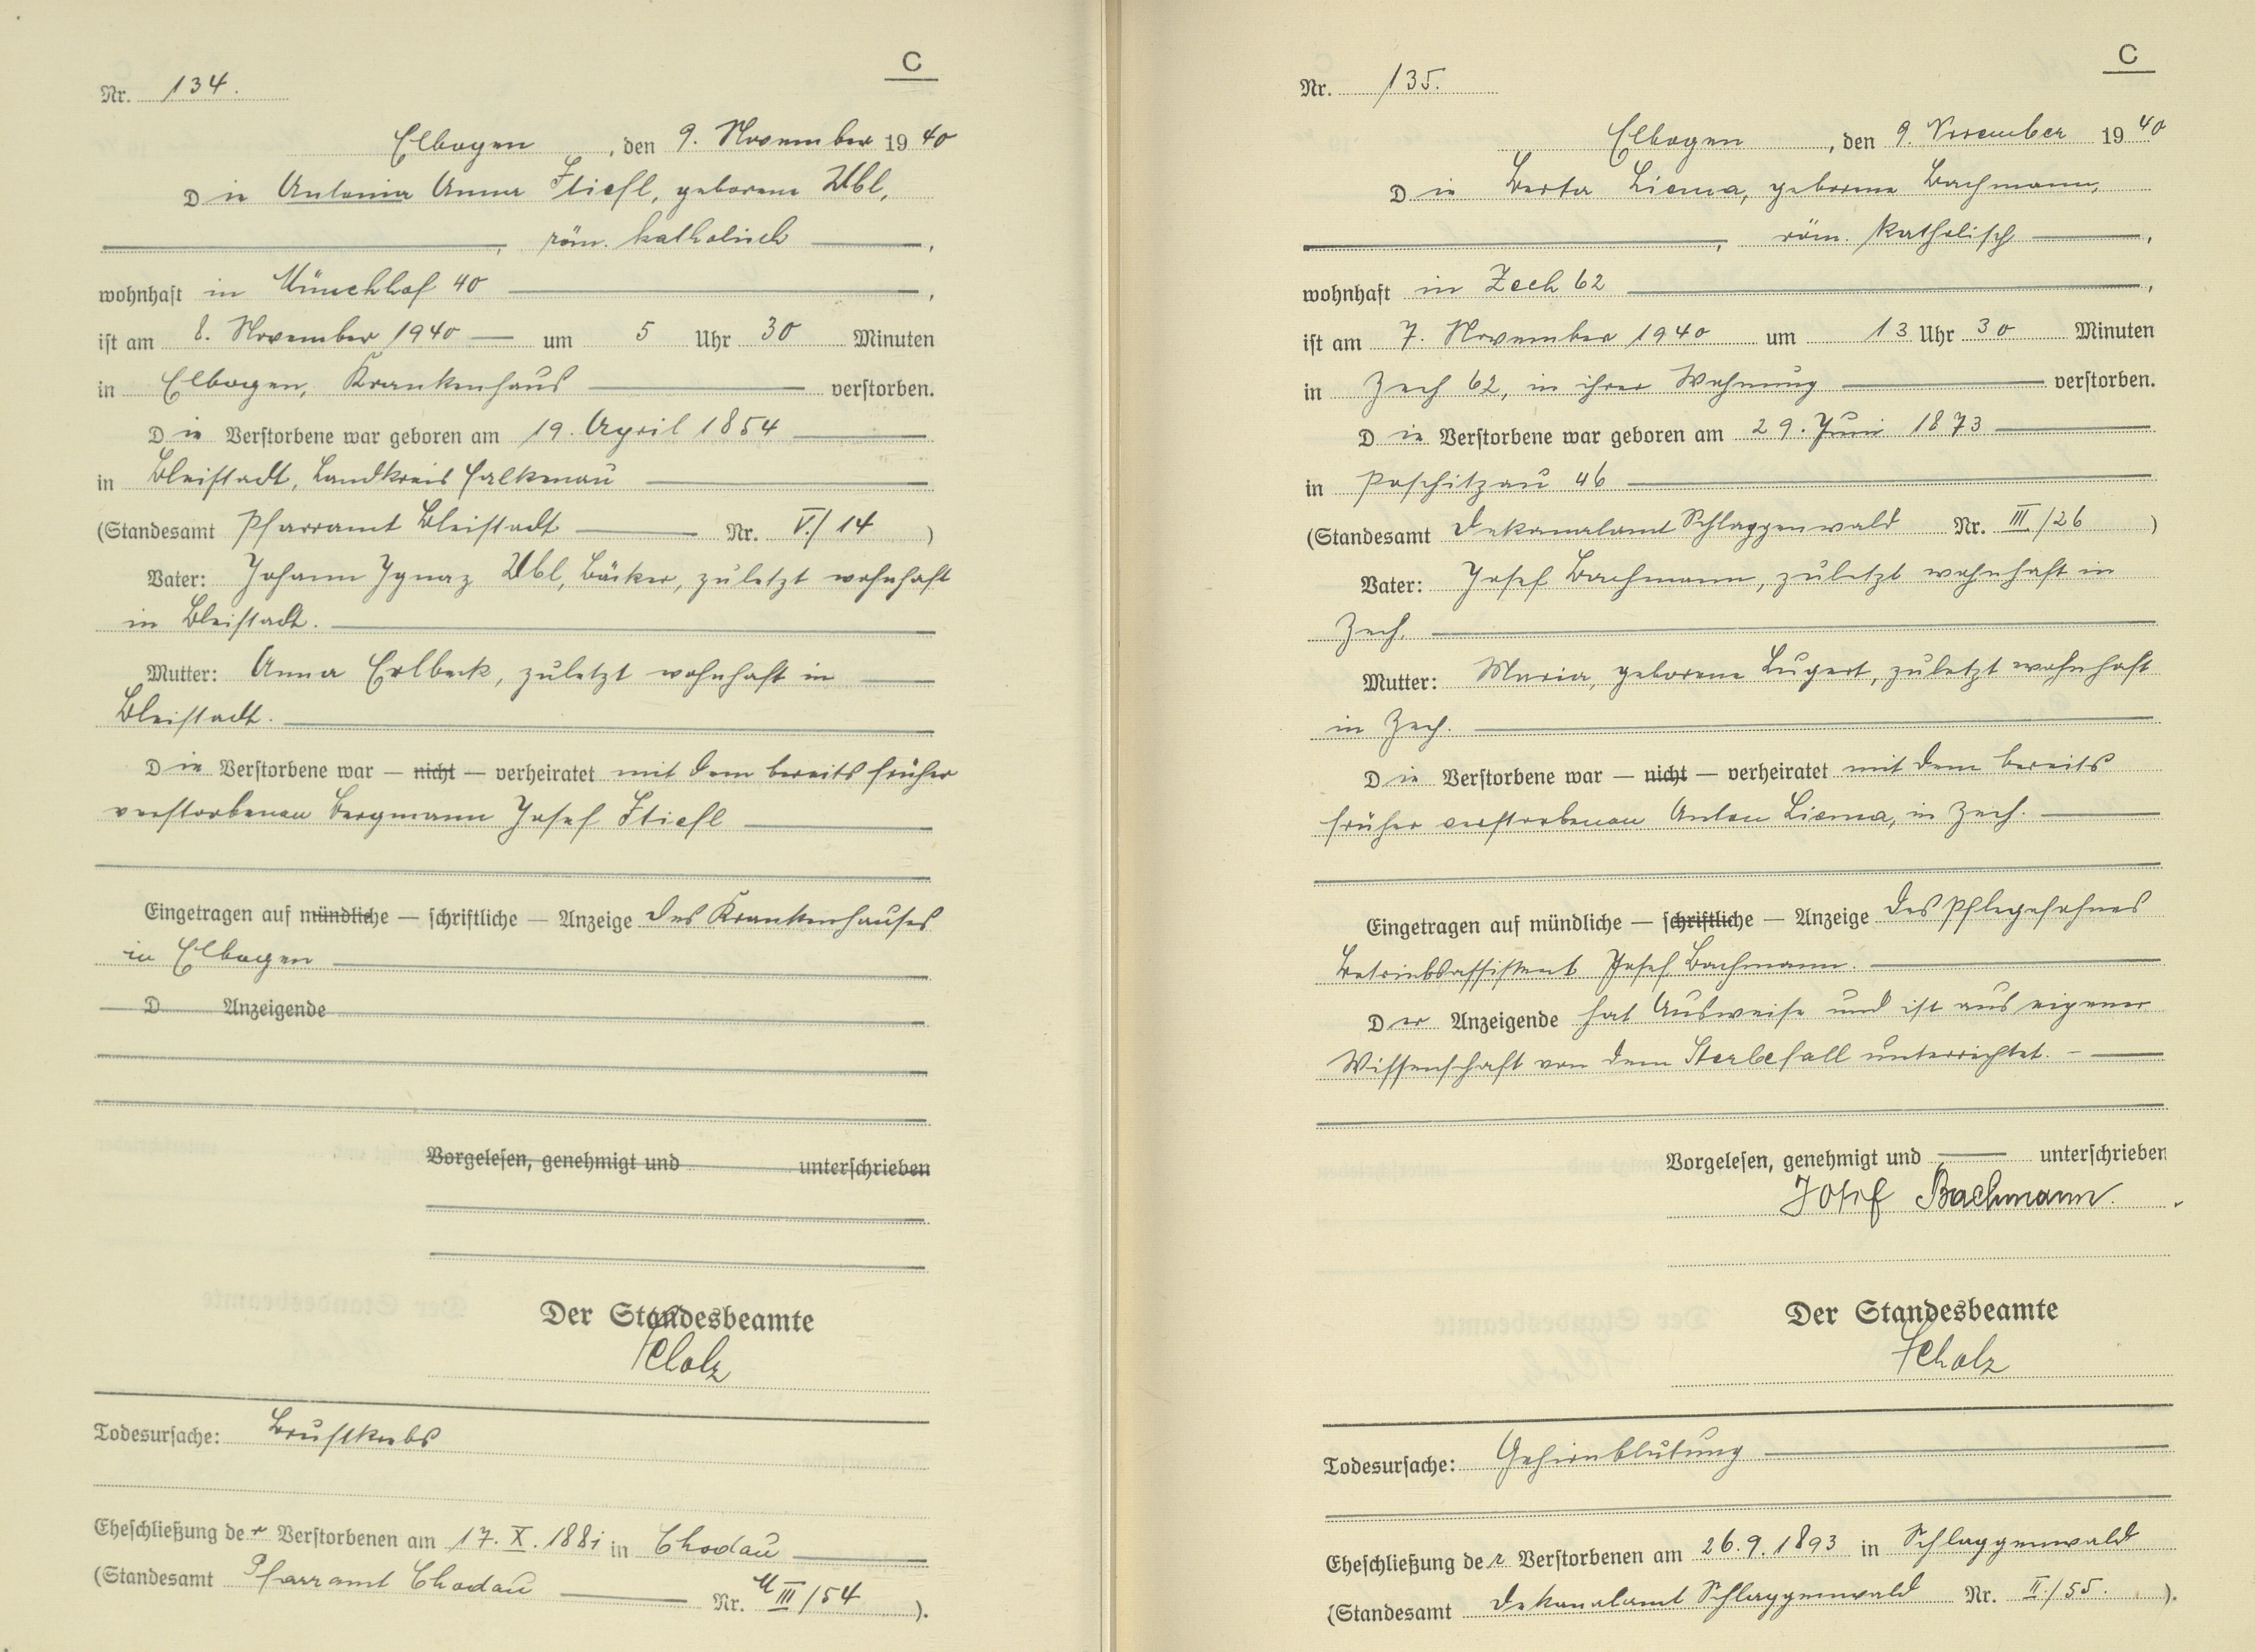 C
Nr. 134.
Elbogen, den 9. November 1940
Die Antonia Anna Stiefl, geborene Ubl,
, röm. katholisch,
wohnhaft in Münchhof 40,
ist am 8. November 1940 um 5 Uhr 30 Minuten
in Elbogen, Krankenhaus verstorben.
Die Verstorbene war geboren am 19. April 1854
in Bleistadt, Landkreis Falkenau
(Standesamt Pfarramt Bleistadt Nr. V./14)
Vater: Johann Ignaz Ubl, Bäcker, zuletzt wohnhaft
in Bleistadt.
Mutter: Anna Erlbeck, zuletzt wohnhaft in
Bleistadt.
Die Verstorbene war — nicht — verheiratet mit dem bereits früher
verstorbenen Bergmann Josef Stiefl
Eingetragen auf mündliche — schriftliche — Anzeige des Krankenhauses
in Elbogen
D Anzeigende
Vorgelesen, genehmigt und unterschrieben
Der Standesbeamte
Scholz
Todesursache: Brustkrebs
Eheschließung der Verstorbenen am 17. X. 1881 in Chodau
(Standesamt Pfarramt Chodau Nr. III/54).
C
Nr. 135.
Elbogen, den 9. November 1940
Die Berta Liema, geborene Bachmann,
, röm. katholisch,
wohnhaft in Zech 62,
ist am 7. November 1940 um 13 Uhr 30 Minuten
in Zech 62, in ihrer Wohnung verstorben.
Die Verstorbene war geboren am 29. Juni 1873
in Poschitzau 46
(Standesamt Dekanalamt Schlaggenwald Nr. III/26)
Vater: Josef Bachmann, zuletzt wohnhaft in
Zech.
Mutter: Maria, geborene Lugert, zuletzt wohnhaft
in Zech.
Die Verstorbene war — nicht — verheiratet mit dem bereits
früher verstorbenen Anton Liema, in Zech.
Eingetragen auf mündliche — schriftliche — Anzeige des Pflegesohnes
Betriebsassistent Josef Bachmann.
Der Anzeigende hat Ausweise und ist aus eigener
Wissenschaft von dem Sterbefall unterrichtet. -
Vorgelesen, genehmigt und unterschrieben
Josef Bachmann.
Der Standesbeamte
Scholz
Todesursache: Gehirnblutung
Eheschließung der Verstorbenen am 26.9.1893 in Schlaggenwald
(Standesamt Dekanalamt Schlaggenwald Nr. II./55.).